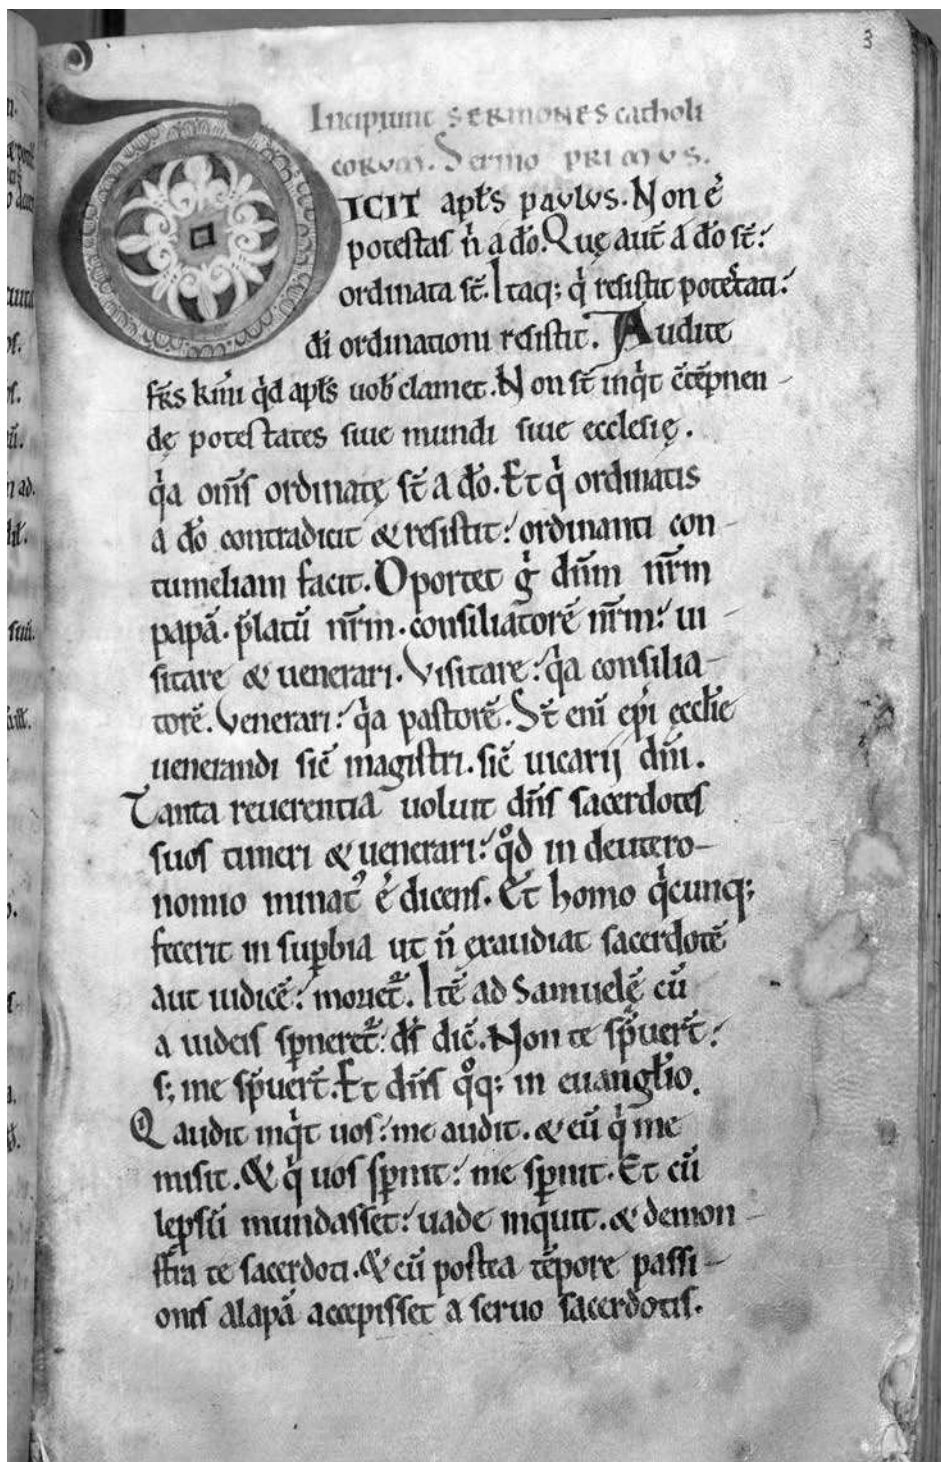 3
Incipiunt SERMONES catholi
CORUM. Sermo PRIMUS.
DICIT apl̄s paulus. Non ē
potestas n̄ a dō. Quę aut̄ a dō st̄:
ordinata st̄. Itaq; qͥ resistit potestati:
di ordinationi resistit. Audite
fr̄s km̄i qͥd apl̄s uob̄ clamet. Non st̄ inqͥt c̄tēpnen-
dę potestates siue mundi siue ecclesię.
qͥa om̄s ordinatę st̄ a dō. Et qͥ ordinatis
a dō contradicit & resistit: ordinanti con-
tumeliam facit. Oportet gͥ dn̄m nr̄m
papā. p̄latū nr̄m. consiliatorē nr̄m: ui-
sitare & uenerari. Visitare: qͥa consilia-
torē. Venerari: qͥa pastorē. St̄ eni̅ ep̄i ęccl̄ie
uenerandi sic̄ magistri. sic̄ uicarij dn̄i.
Tanta reuerentia uoluit dn̄s sacerdotes
suos timeri & uenerari: qͦd in deutero-
nomio minatᷣ ē dicens. Et homo qͥcunq;
fecerit in sup̱bia ut n̄ exaudiat sacerdotē
aut iudicē: moriet᷑. Itē ad Samuelē cū
a iudeis sp̱neret᷑: ds̄ dic̄. Non te sp̄uer̄t:
s; me sp̄uer̄t. Et dn̄s qͦq; in euangl̄io.
Q audit inqͥt uos: me audit. & eū qͥ me
misit. & qͥ uos sp̱nit: me sp̱nit. Et cū
lep̱sū mundasset: uade inquit. & demon-
stra te sacerdoti. & cū postea tēpore passi-
onis alapā accepisset a seruo sacerdotis.